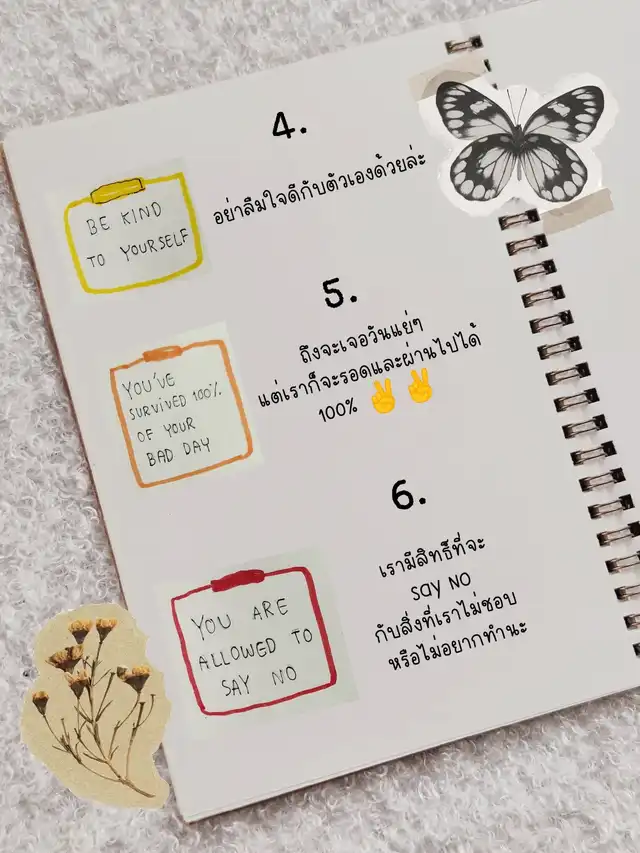 4.
BE KIND
TO YOURSELF
อย่าลืมใจดีกับตัวเองด้วยล่ะ
5.
YOU'VE
SURVIVED 100%
OF YOUR
BAD DAY
ถึงจะเจอวันแย่ๆ
แต่เราก็จะรอดและผ่านไปได้
100% ✌️✌️
6.
YOU ARE
ALLOWED TO
SAY NO
เรามีสิทธิ์ที่จะ
say no
กับสิ่งที่เราไม่ชอบ
หรือไม่อยากทำนะ